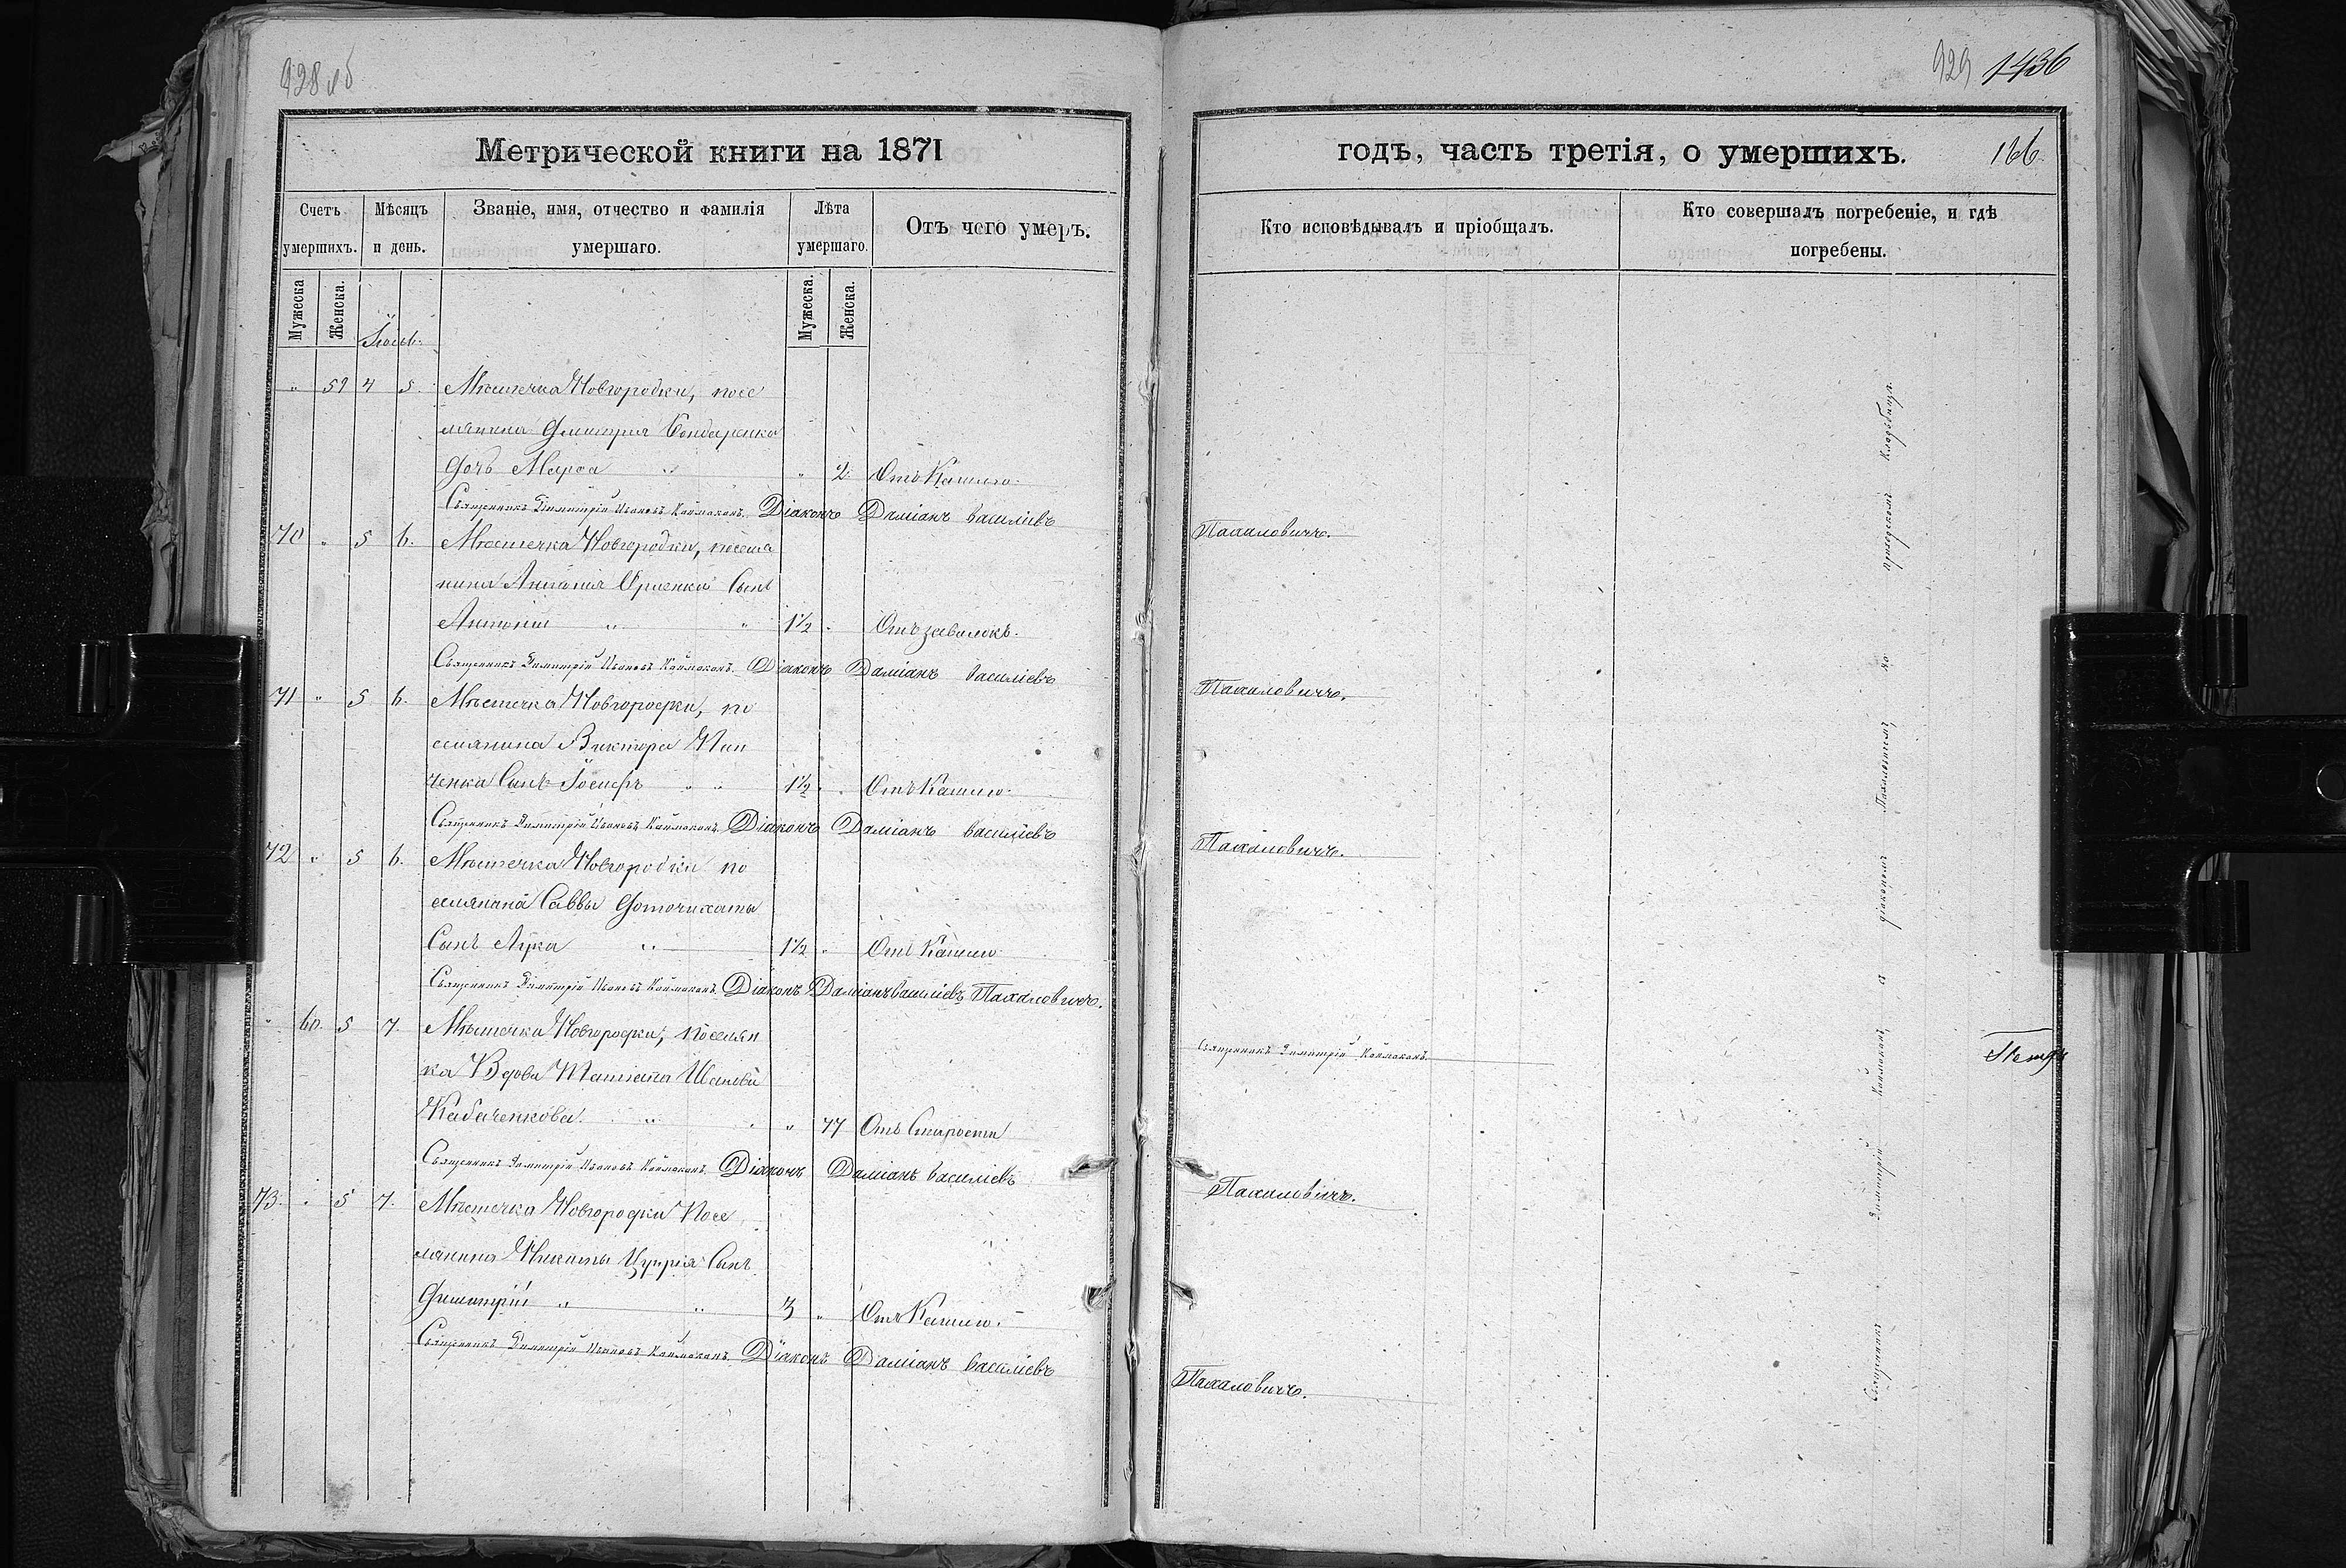 928 об
Метрической книги на 1871
Счетъ умершихъ.
Мѣсяцъ и день.
Званіе, имя, отчество и фамилія умершаго.
Лѣта умершаго.
Отъ чего умеръ.
Мужеска
Женска.
Мужеска.
Женска.
" 59 4 5. Мѣстечка Новгородки, посе
лянина Дмитрія Бондаренка
дочь Марѳа " " 2. Отъ Кашлю.
Священникъ Димитрій Ивановъ Каймаканъ. Діаконъ Даміанъ Василіевъ
70 " 5 6. Мѣстечка Новгородки, поселя
нина Антонія Сынъ
Антоній " " 1½ " Отъ завалокъ.
Священникъ Димитрій Ивановъ Каймаканъ. Діаконъ Даміанъ Василіевъ
71 " 5 6. Мѣстечка Новгородки, по
селянина Виктора
ченка Сынъ Іосифъ " " 1½ " Отъ Кашлю.
Священникъ Димитрій Ивановъ Каймаканъ. Діаконъ Даміанъ Василіевъ
72 " 5 6. Мѣстечка Новгородки по
селянина Саввы
Сынъ Лука " 1½ " Отъ Кашлю
Священникъ Димитрій Ивановъ Каймаканъ. Діаконъ Даміанъ Василіевъ Пахаловичъ.
" 60. 5 7. Мѣстечка Новгородки, поселян
ка Вдова Татіана
Кабаченкова. " " " 77 Отъ Старости
Священникъ Димитрій Ивановъ Каймаканъ. Діаконъ Даміанъ Василіевъ
73. " 5 7. Мѣстечка Новгородки Посе
лянина Никиты Сынъ
Димитрій " " 3 " Отъ Кашлю.
Священникъ Димитрій Ивановъ Каймаканъ. Діаконъ Даміанъ Василіевъ
929 1436
годъ, часть третія, о умершихъ. 166.
Кто исповѣдывалъ и пріобщалъ.
Кто совершалъ погребеніе, и гдѣ погребены.
Пахаловичъ.
Пахаловичъ.
Пахаловичъ.
Священникъ Димитрій Каймаканъ.
Пахаловичъ.
Пахаловичъ.
Священникъ Димитрій Каймаканъ, съ діакономъ на приходскомъ Кладбищѣ.